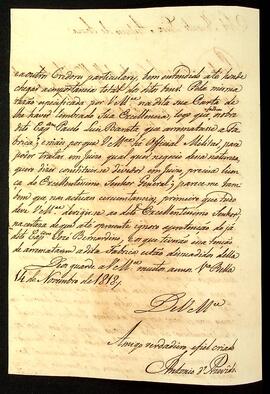 a outro Credor particular, bem entendido até honde
chegar a importancia total do dito
clareza especificada por V. M.ce na dita sua Carta de
lhe haver lembrado Sua Excellencia, logo que
dito Cap.am Paulo Luiz Barata, que arrematara a Fa
brica; e mais por que V. M.ce he Official Militar, para
poder tratar em Juizo qual quer negocio desta natureza,
quer dizer constituir-se devedor em Juizo, precisa licen
ça do Excellentissimo Senhor General; parece-me tam
bem que nas actuaes circunstancias, primeiro que tudo
deve V. M.ce dirigir-se ao dito Excellentissimo Senhor,
pacatera da que até prezente ignore a pertenção do já
dito Cap.am José Bernardino, o que tivesse essa tenção
de arrematar a dita Fabrica estar desviado della
Deos guarde a V. M.ce muitos annos. V.a Bella
14 de Novembro de 1818
De V. M.ce
Amigo verdadeiro, e fiel criado
Antonio